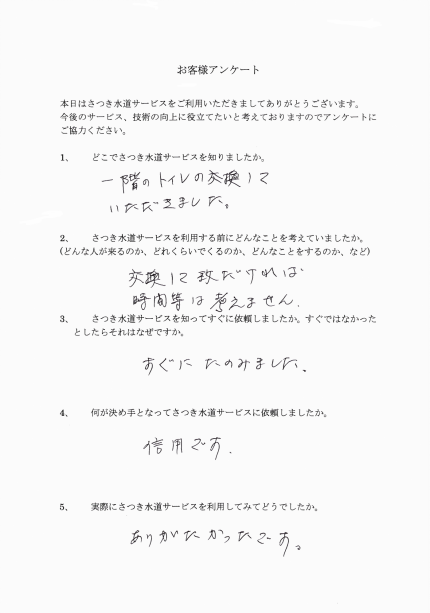 お客様アンケート
本日はさつき水道サービスをご利用いただきましてありがとうございます。
今後のサービス、技術の向上に役立てたいと考えておりますのでアンケートに
ご協力ください。
1、 どこでさつき水道サービスを知りましたか。
一階のトイレの交換して
いただきました。
2、 さつき水道サービスを利用する前にどんなことを考えていましたか。
(どんな人が来るのか、どれくらいでくるのか、どんなことをするのか、など)
交換して頂だければ
時間等は考えません.
3、 さつき水道サービスを知ってすぐに依頼しましたか。すぐではなかった
としたらそれはなぜですか。
すぐにたのみました.
4、 何が決め手となってさつき水道サービスに依頼しましたか。
信用です.
5、 実際にさつき水道サービスを利用してみてどうでしたか。
ありがたかったです。